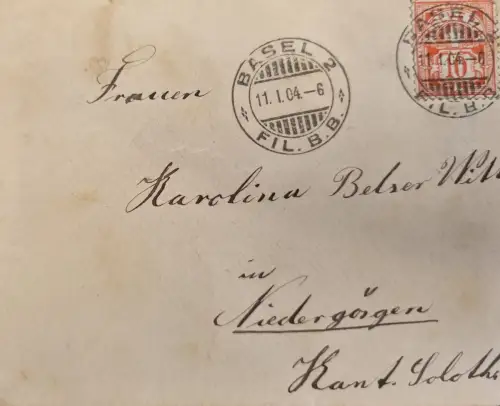 BASEL 2
11.I.04.-6
FIL. B.B.
BASEL 2
10
11.I.04.-6
FIL. B.B.
Frauen
Karolina Belser Witt
in
Niedergösgen
Kant. Soloth